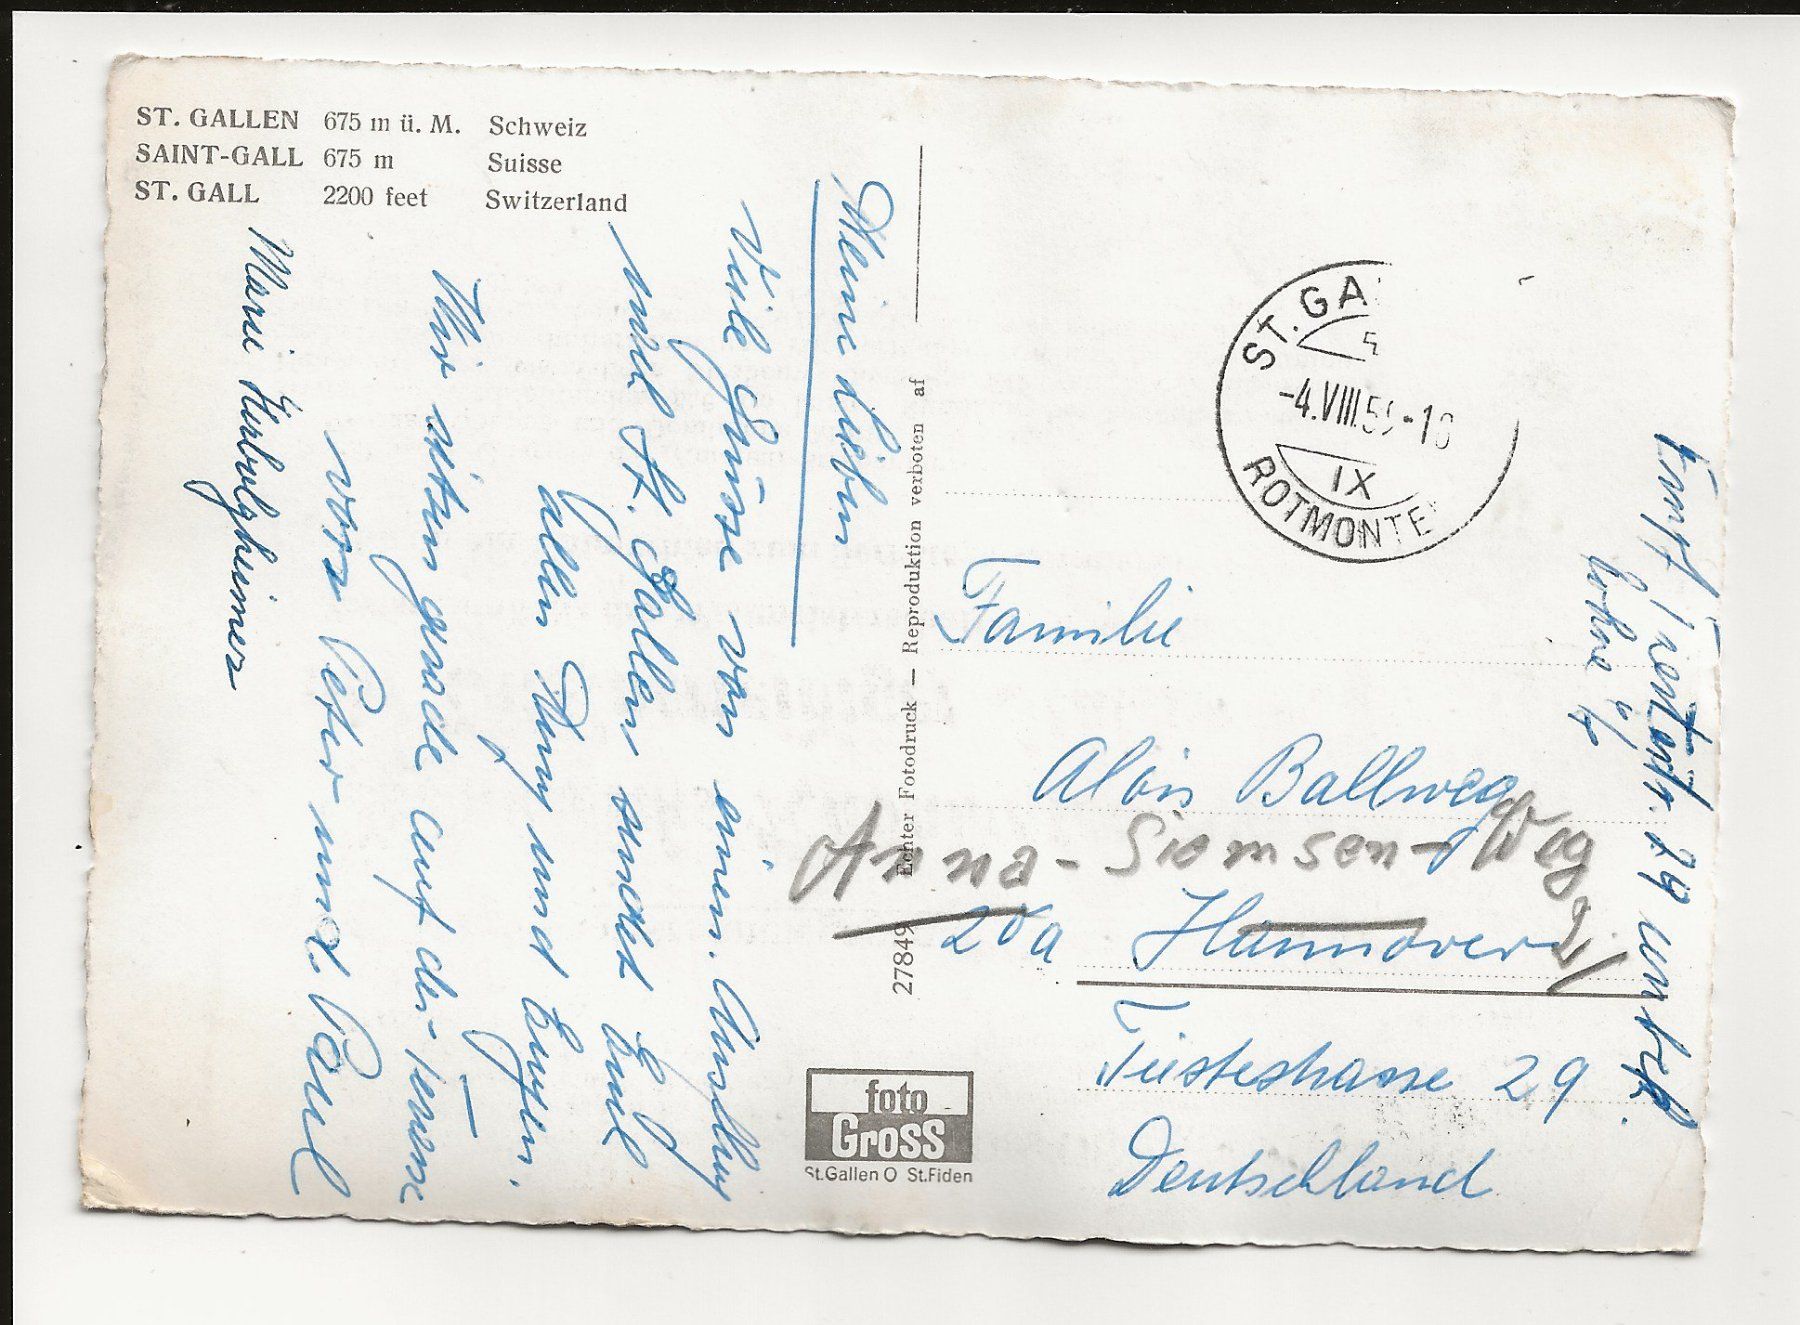 ST. GALLEN 675 m ü. M. Schweiz
SAINT-GALL 675 m Suisse
ST. GALL 2200 feet Switzerland
Meine Lieben
Viele Grüsse von einem Ausflug
nach St. Gallen sendet Euch
allen Dany und Eugen.
Wir sitzen gerade auf der Terrasse
von Peter und Paul
Marie
27849 Echter Fotodruck — Reproduktion verboten af
foto
Gross
St.Gallen O St.Fiden
ST. GA
-4.VIII.5
IX
ROTMONTE
Familie
Alois Ballweg
Anna-Siemsen-Weg
20a Hannover
Tiestestrasse 29
Deutschland
29 unbek.